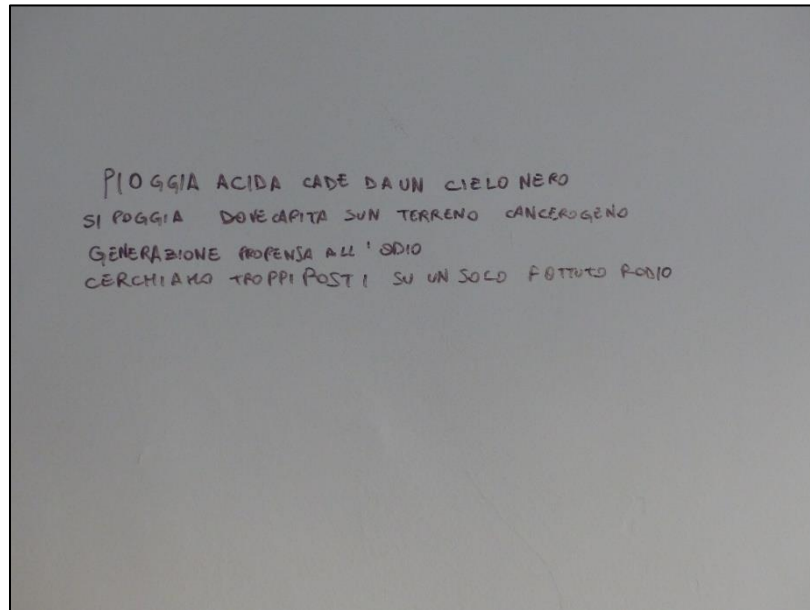 PIOGGIA ACIDA CADE DA UN CIELO NERO
SI POGGIA DOVE CAPITA SUN TERRENO CANCEROGENO
GENERAZIONE PROPENSA ALL'ODIO
CERCHIAMO TROPPI POSTI SU UN SOLO FOTTUTO PODIO